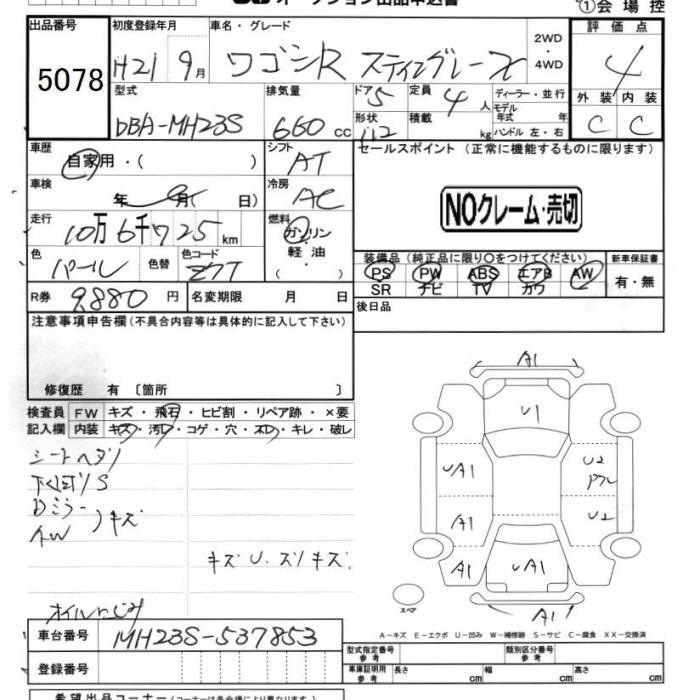 オークション出品申込書
①会場控
出品番号
5078
初度登録年月
H21 9月
車名・グレード
ワゴンR スティングレーX
2WD
・
4WD
評価点
4
外装 内装
C C
型式
DBA-MH23S
排気量
660 cc
ドア 5
定員 4 人
形状
積載 kg
ディーラー・並行
モデル年式 年
ハンドル 左・右
車歴
自家用・( )
シフト
AT
セールスポイント (正常に機能するものに限ります)
NOクレーム・売切
車検
年 月( 日)
冷房
AC
走行
10万6千725km
燃料
ガソリン
軽油・
( )
色
パール
色替
色コード
Z7T
装備品(純正品に限り〇をつけてください)
PS PW ABS エアB AW
SR ナビ TV カワ
新車保証書
有・無
R券 9,880 円
名変期限 月 日
後日品
注意事項申告欄(不具合内容等は具体的に記入して下さい)
修復歴 有 〔箇所 〕
検査員 FW キズ・飛石・ヒビ割・リペア跡・×要
記入欄 内装 キズ・汚レ・コゲ・穴・スレ・キレ・破レ
シートヘタリ
下くぼりS
Dミラー
AW
キズ
キズU.ズリキズ
オイルにじみ
A1
U1
UA1
U2
A1
U2
A1
UA1
A1
A1
スペア
A-キズ E-エクボ U-凹み W-補修跡 S-サビ C-腐食 XX-交換済
車台番号 MH23S-537853
登録番号
型式指定番号
参考
類別区分番号
参考
車庫証明用
参考
長さ cm 幅 cm 高さ cm
希望出品コーナー(コーナーは各会場により異なります)